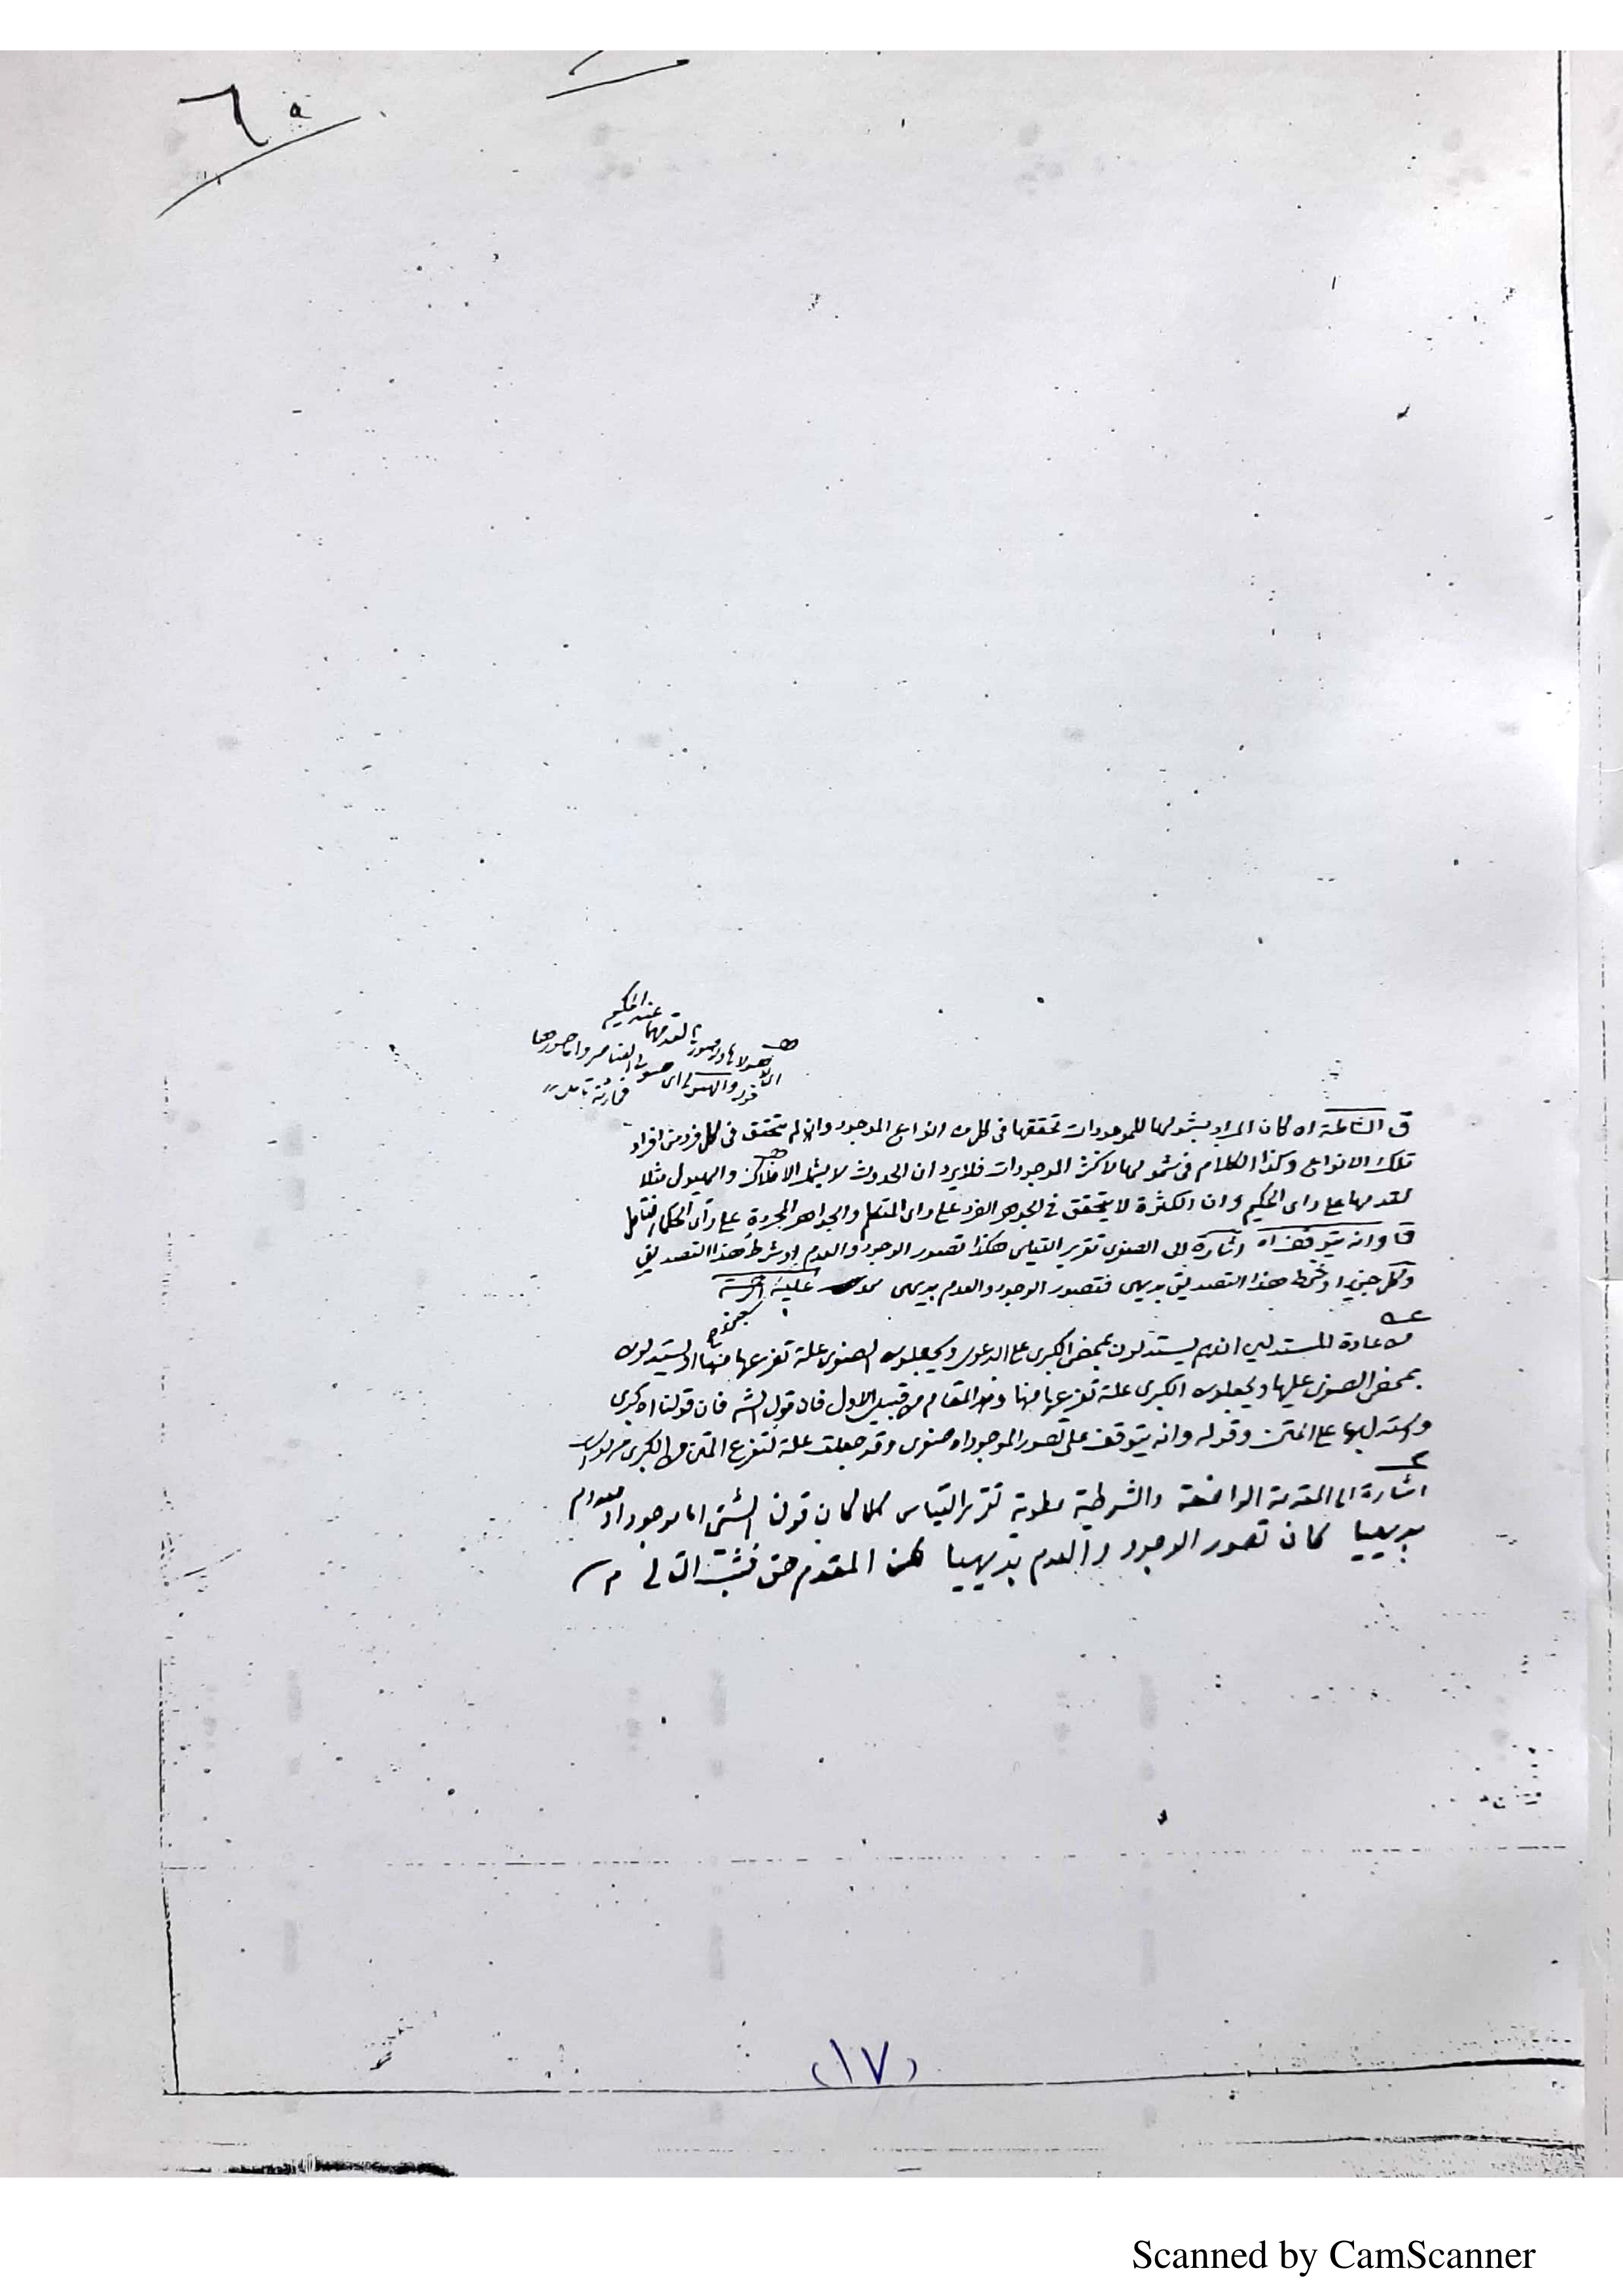 ٦٥
عند الحكيم
لقدمهما
فحادثة تأمل
ق الشاملة اه كان المراد بشمولها للموجودات تحققها في كل من انواع الموجود وان لم يتحقق في كل فرد من افراد
تلك الانواع وكذا الكلام في شمولها لاكثر الموجودات فلا يرد ان الحدوث لا يشمل الافلاك والهيولى مثلا
لقدمها على راى الحكيم وان الكثرة لا يتحقق في الجوهر الفرد على راى المتكلم والجواهر المجردة على راى الحكماء فتأمل
قا وانه يتوقف اه اشارة الى الصغرى تقرير القياس هكذا تصور الوجود والعدم او شرط هذا التصديق
وكل جزء او شرط هذا التصديق بديهى فتصور الوجود والعدم بديهى
من عادة المستدلين انهم يستدلون بمحض الكبرى على الدعوى ويجعلون الصغرى علة تفرعها منها او يستدلون
بمحض الصغرى عليها ويجعلون الكبرى علة تفرعها منها وهذا المقام من قبيل الاول فان قول الش فان قولنا اه كبرى
واستدل بها على المتن وقوله وانه يتوقف على تصور الموجود اه صغرى وقد جعلت علة لتفرع المتن من الكبرى
اشارة الى المقدمة الواضعة والشرطية مطوية تقرير القياس كلما كان قولنا الشئ اما موجود او معدوم
بديهيا كان تصور الوجود والعدم بديهيا لكن المقدم حق فثبت التالي
(١٧)
Scanned by CamScanner